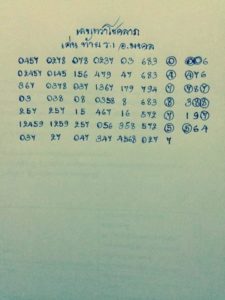 เลขเทวาโชคลาภ
เด่น ท้าย ว.1 อ.มงคล
0457 0278 078 0237 03 689 0 606
02457 0145 156 479 47 683 7 746
367 0378 037 1367 179 794 7 787
03 038 08 0358 8 689 8 388
257 257 15 467 16 572 7 197
12459 1259 257 056 958 572 5 564
034 27 047 347 4568 027 7